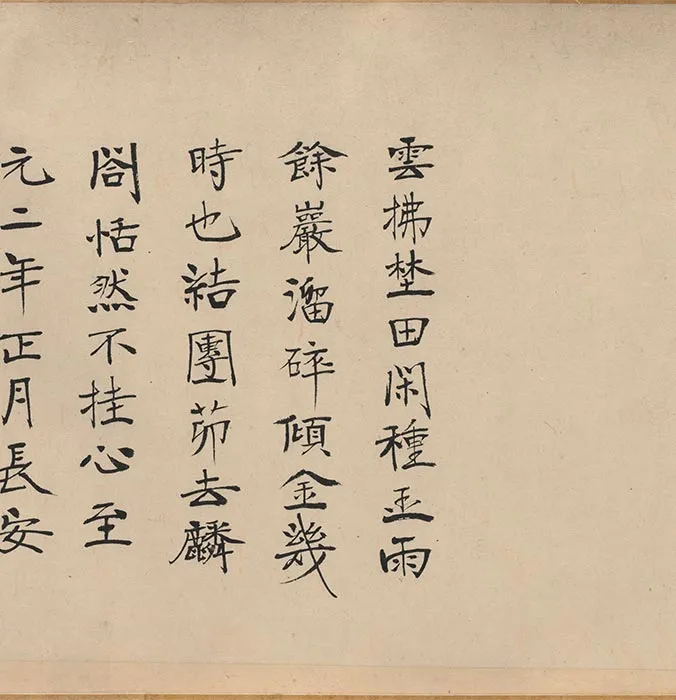 雲拂埜田閑種玉雨
餘巖溜碎傾金幾
時也結團茆去麟
閣恬然不挂心至
元二年正月長安